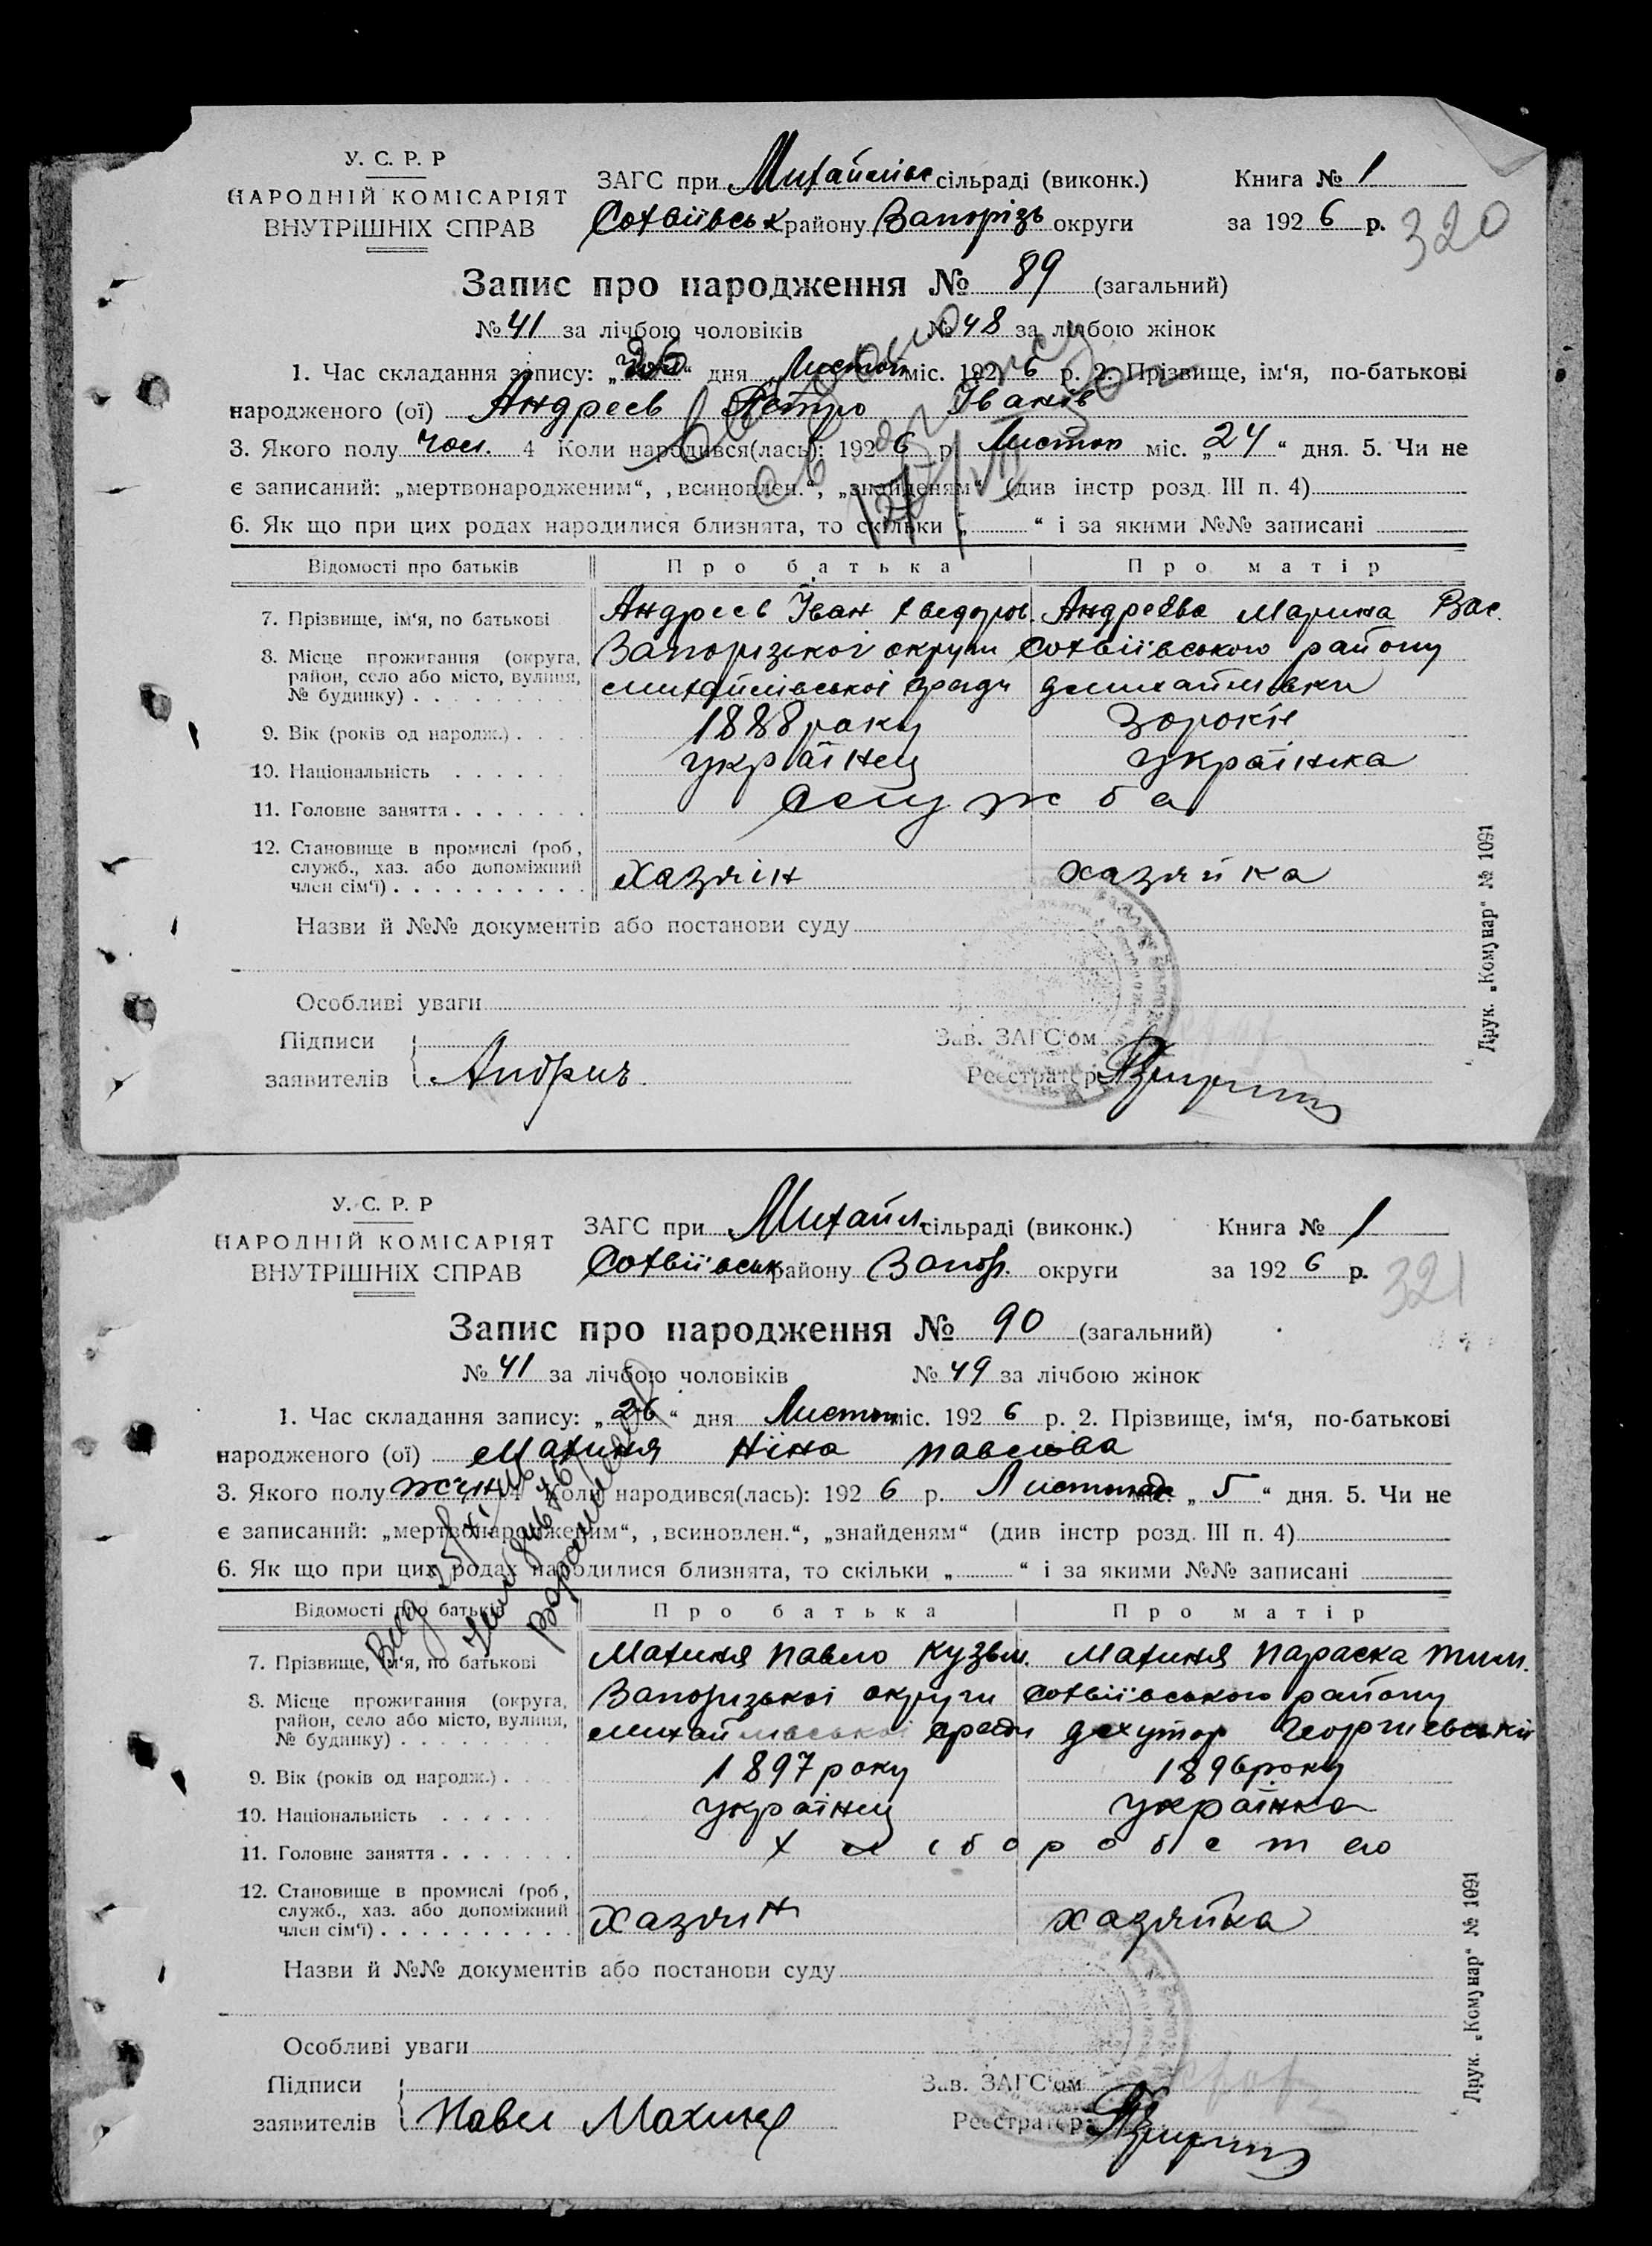 У. С. Р. Р
НАРОДНІЙ КОМІСАРІЯТ
ВНУТРІШНІХ СПРАВ
ЗАГС при Михайлівс сільраді (виконк.)
Софіївськ району Запорізь округи
Книга № 1
за 1926 р.
320
Запис про народження № 89 (загальний)
№ 41 за лічбою чоловіків № 48 за лічбою жінок
1. Час складання запису: „26“ дня Листоп міс. 1926 р. 2. Прізвище, ім‘я, по-батькові
народженого (ої) Андреєв Петро Іванів
3. Якого полу чол. 4 Коли народився(лась): 1926 р. Листоп міс. „24“ дня. 5. Чи не
є записаний: „мертвонародженим“, „всиновлен.“, „знайденям“ (див інстр розд. III п. 4)
6. Як що при цих родах народилися близнята, то скільки „ “ і за якими №№ записані
Відомості про батьків Про батька Про матір
7. Прізвище, ім‘я, по батькові Андреєв Іван Хведоров. Андреєва Марина Вас.
8. Місце проживання (округа, район, село або місто, вулиця, № будинку) Запорізької округи Софіївського району
Михайлівської сради с Михайлівки
9. Вік (років од народж.) 1888 року 30 років
10. Національність українец українка
11. Головне заняття служба
12. Становище в промислі (роб, служб., хаз. або допоміжний член сім‘ї) хазяін хазяйка
Назви й №№ документів або постанови суду
Особливі уваги
Підписи
заявителів
Зав. ЗАГС‘ом
Реєстратер
Друк. „Комунар“ № 1091
У. С. Р. Р
НАРОДНІЙ КОМІСАРІЯТ
ВНУТРІШНІХ СПРАВ
ЗАГС при Михайл. сільраді (виконк.)
Софіївськ району Запор. округи
Книга № 1
за 1926 р.
321
Запис про народження № 90 (загальний)
№ 41 за лічбою чоловіків № 49 за лічбою жінок
1. Час складання запису: „26“ дня Листоп міс. 1926 р. 2. Прізвище, ім‘я, по-батькові
народженого (ої) Махиня Ніна Павлова
3. Якого полу жін 4 Коли народився(лась): 1926 р. Листопад міс. „5“ дня. 5. Чи не
є записаний: „мертвонародженим“, „всиновлен.“, „знайденям“ (див інстр розд. III п. 4)
6. Як що при цих родах народилися близнята, то скільки „ “ і за якими №№ записані
Відомості про батьків Про батька Про матір
7. Прізвище, ім‘я, по батькові Махиня Павло Кузьм. Махиня Параска Тим.
8. Місце проживання (округа, район, село або місто, вулиця, № будинку) Запорізької округи Софіївського району
Михайлівської сради хутор Георгиевський
9. Вік (років од народж.) 1897 року 1896 року
10. Національність українец українка
11. Головне заняття хліборобство
12. Становище в промислі (роб, служб., хаз. або допоміжний член сім‘ї) хазяин хазяйка
Назви й №№ документів або постанови суду
Особливі уваги
Підписи
заявителів Павел Махиня
Зав. ЗАГС‘ом
Реєстратер
Друк. „Комунар“ № 1091